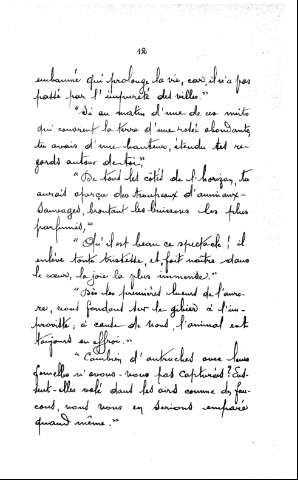 12
embaumé qui prolonge la vie, car il n'a pas
passé par l'impureté des villes."
"Si au matin d'une de ces nuits
qui couvrent la terre d'une rosée abondante,
tu avais d'une hauteur, étendu tes re-
gards autour de toi,"
"De tout les côtés de l'horizon, tu
aurais aperçu des troupeaux d'animaux-
Sauvages, broutant les buissons les plus
parfumés,"
"Qu'il est beau ce spectacle! il
enlève toute tristesse, et fait naître dans
le cœur, la joie la plus immense."
"Dès les premières lueurs de l'auro-
re, nous fondons sur le gibier à l'im-
proviste, à cause de nous, l'animal est
toujours en effroi."
"Combien d'autruches avec leurs
femelles n'avons-nous pas capturées? Eus-
sent-elles volé dans les airs comme des fau-
cons, nous nous en serions emparés
quand même."